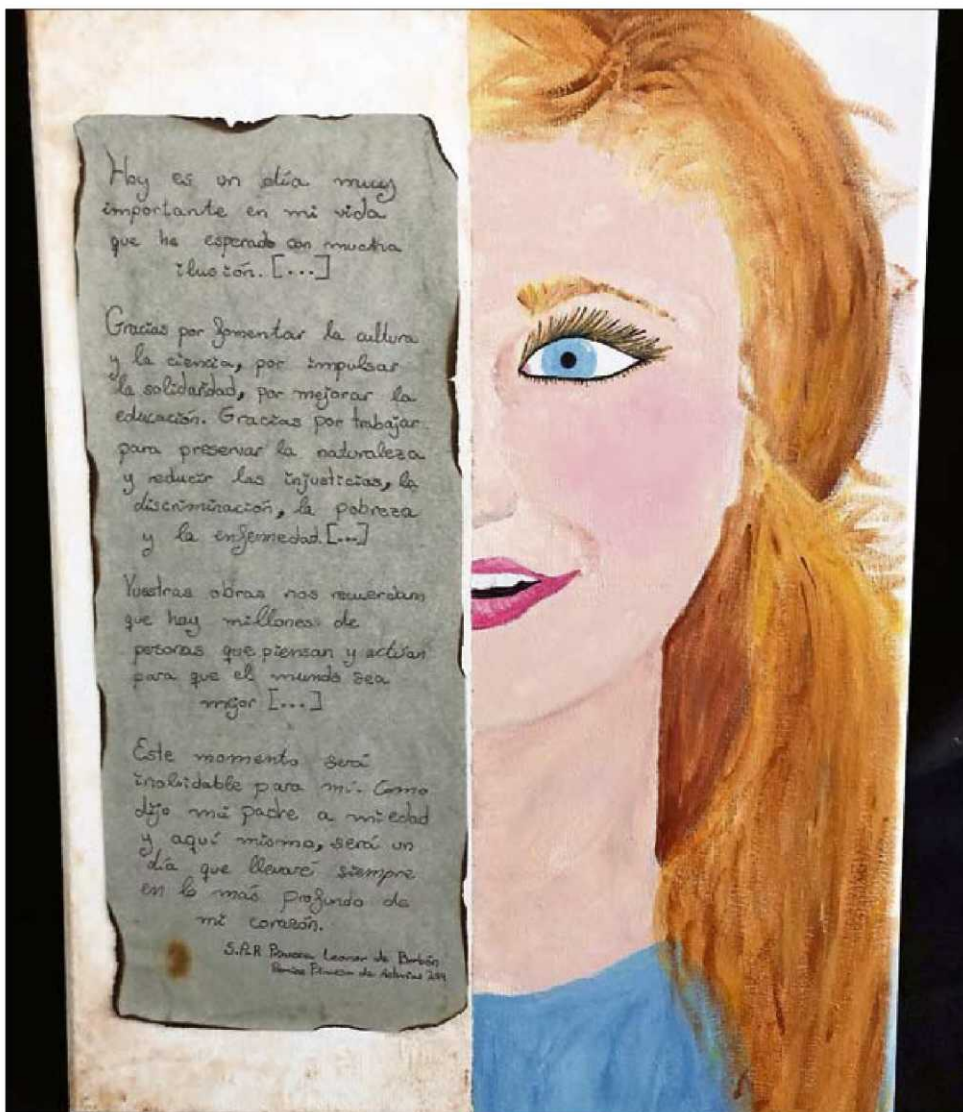 Hoy es un día muy
importante en mi vida
que he esperado con mucha
ilusión. [...]
Gracias por fomentar la cultura
y la ciencia, por impulsar
la solidaridad, por mejorar la
educación. Gracias por trabajar
para preservar la naturaleza
y reducir las injusticias, la
discriminación, la pobreza
y la enfermedad. [...]
Vuestras obras nos recuerdan
que hay millones de
personas que piensan y actúan
para que el mundo sea
mejor [...]
Este momento será
inolvidable para mí. Como
dijo mi padre a mi edad
y aquí mismo, será un
día que llevaré siempre
en lo más profundo de
mi corazón.
S.A.R Princesa Leonor de Borbón
Premios Princesa de Asturias 2019